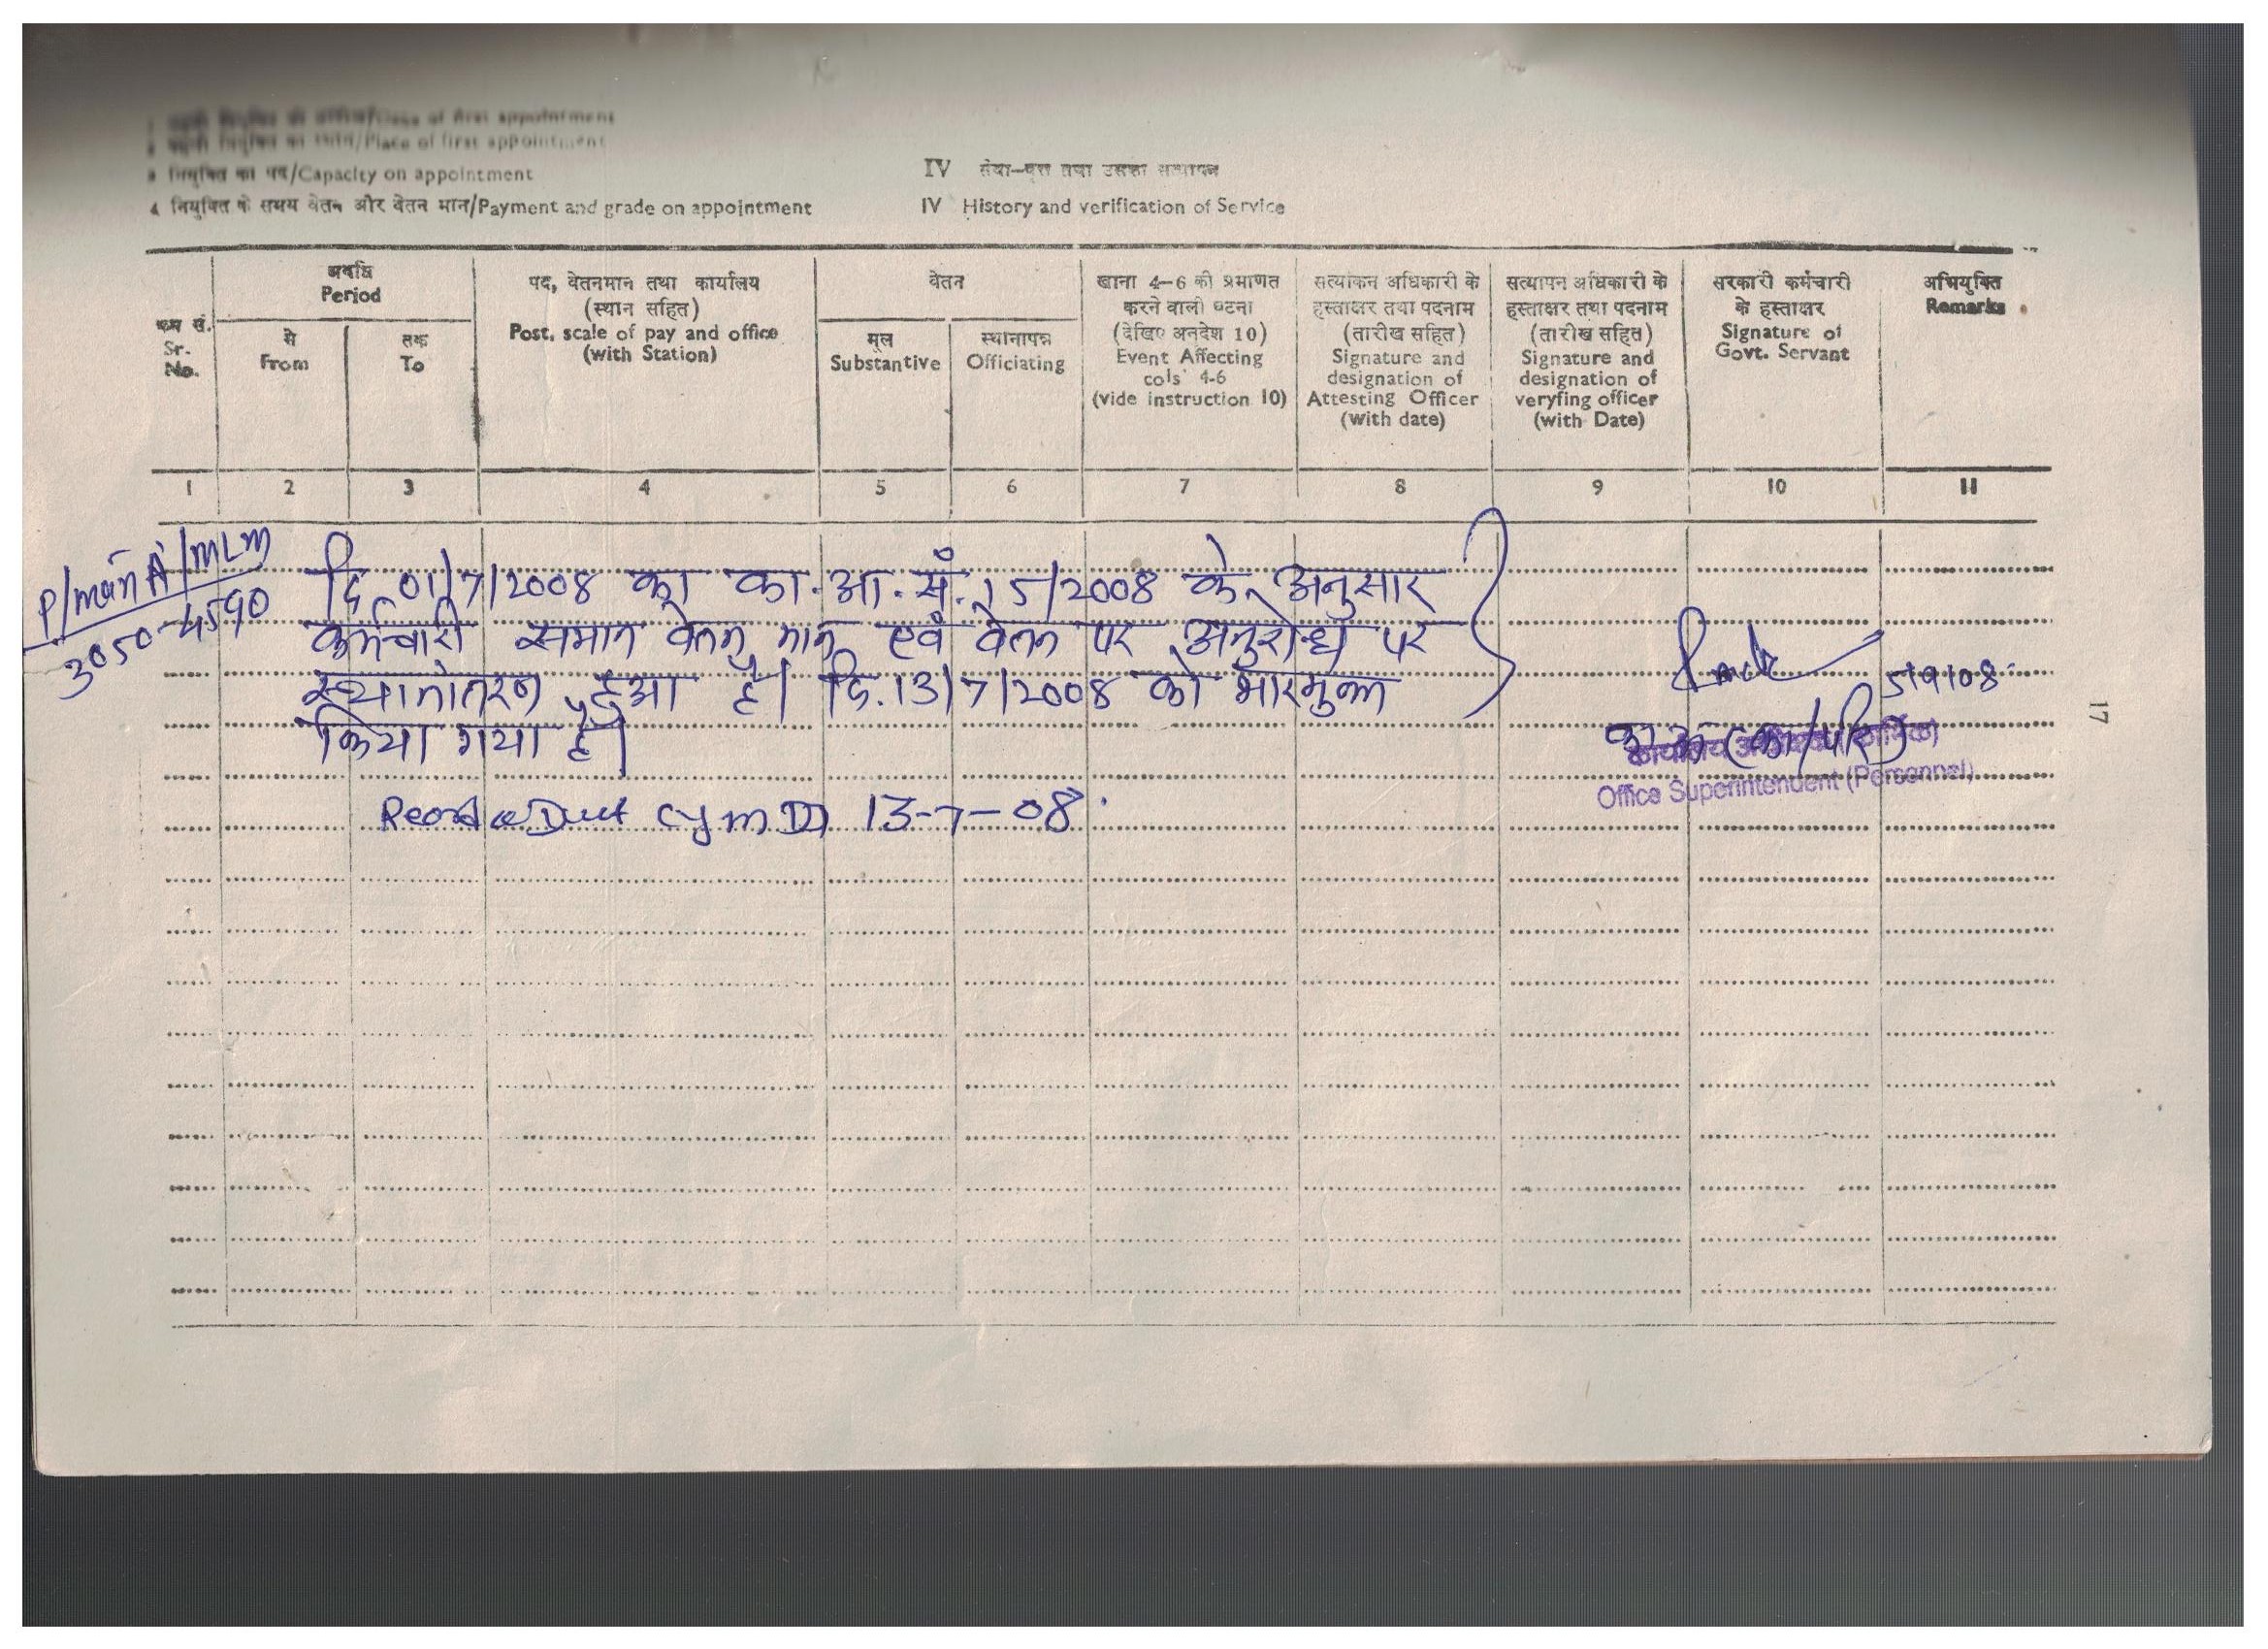 Place of first appointment
Place of first appointment
3 नियुक्ति का पद/Capacity on appointment
4 नियुक्ति के समय वेतन और वेतन मान/Payment and grade on appointment
IV सेवा-वृत्त तथा उसका सत्यापन
IV History and verification of Service
क्रम सं. Sr. No.
अवधि Period
से From
तक To
पद, वेतनमान तथा कार्यालय
(स्थान सहित)
Post. scale of pay and office
(with Station)
वेतन
मूल Substantive
स्थानापन्न Officiating
खाना 4-6 की प्रमाणत
करने वाली घटना
(देखिए अनदेश 10)
Event Affecting
cols' 4-6
(vide instruction 10)
सत्यांकन अधिकारी के
हस्ताक्षर तथा पदनाम
(तारीख सहित)
Signature and
designation of
Attesting Officer
(with date)
सत्यापन अधिकारी के
हस्ताक्षर तथा पदनाम
(तारीख सहित)
Signature and
designation of
veryfing officer
(with Date)
सरकारी कर्मचारी
के हस्ताक्षर
Signature of
Govt. Servant
अभियुक्ति
Remarks
1 2 3 4 5 6 7 8 9 10 11
P/man A/MLM
3050-4590
दि. 01/7/2008 का का.आ.सं. 15/2008 के अनुसार
कर्मचारी समान वेतन मान एवं वेतन पर अनुरोध पर
स्थानांतरन हुआ है। दि. 13/7/2008 को भारमुक्त
किया गया है।
CYM 13-7-08
5/9/08
Office Superintendent (Personnel)
17